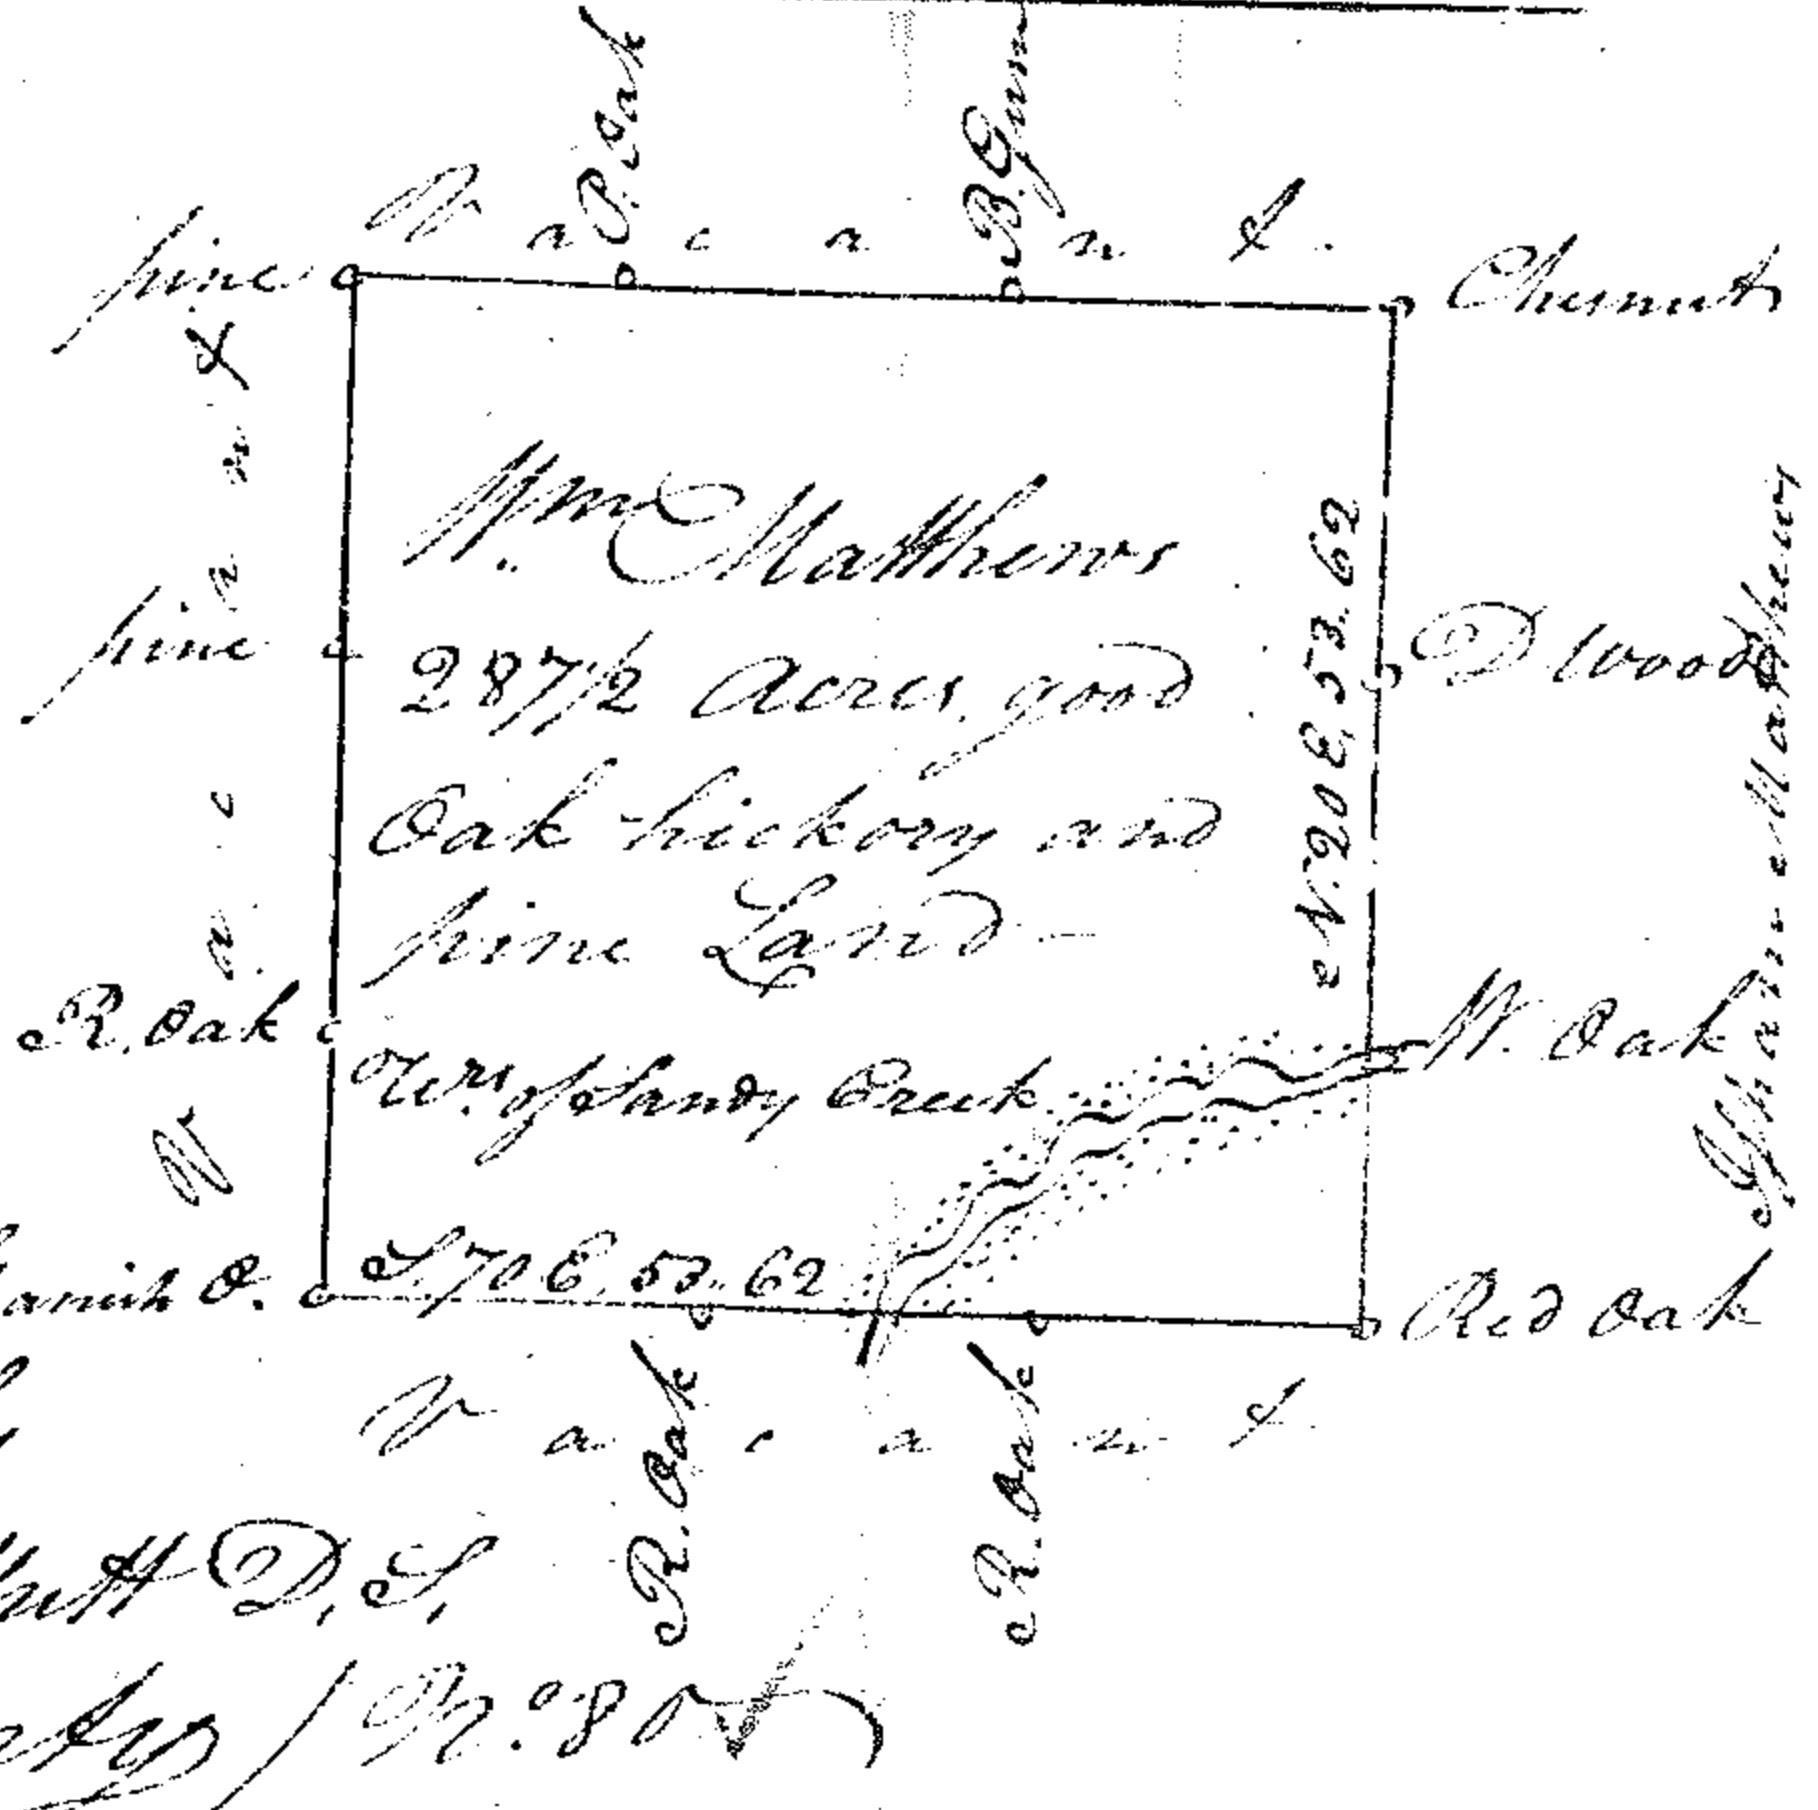 P. Oak
B. Gum
V a c a n t
pine
Chesnut
V a c a n t
Wm Matthews
287 1/2 Acres, good
Oak hickory and
pine Land
pine
D Wood
N. 20 E, 53. 62
Matthews
R. Oak
Wrs of Sandy Creek
W. Oak
S. 70 E. 53. 62
O.
Red Oak
V a c a n t
R. Oak
R. Oak
D. S.
No. 80